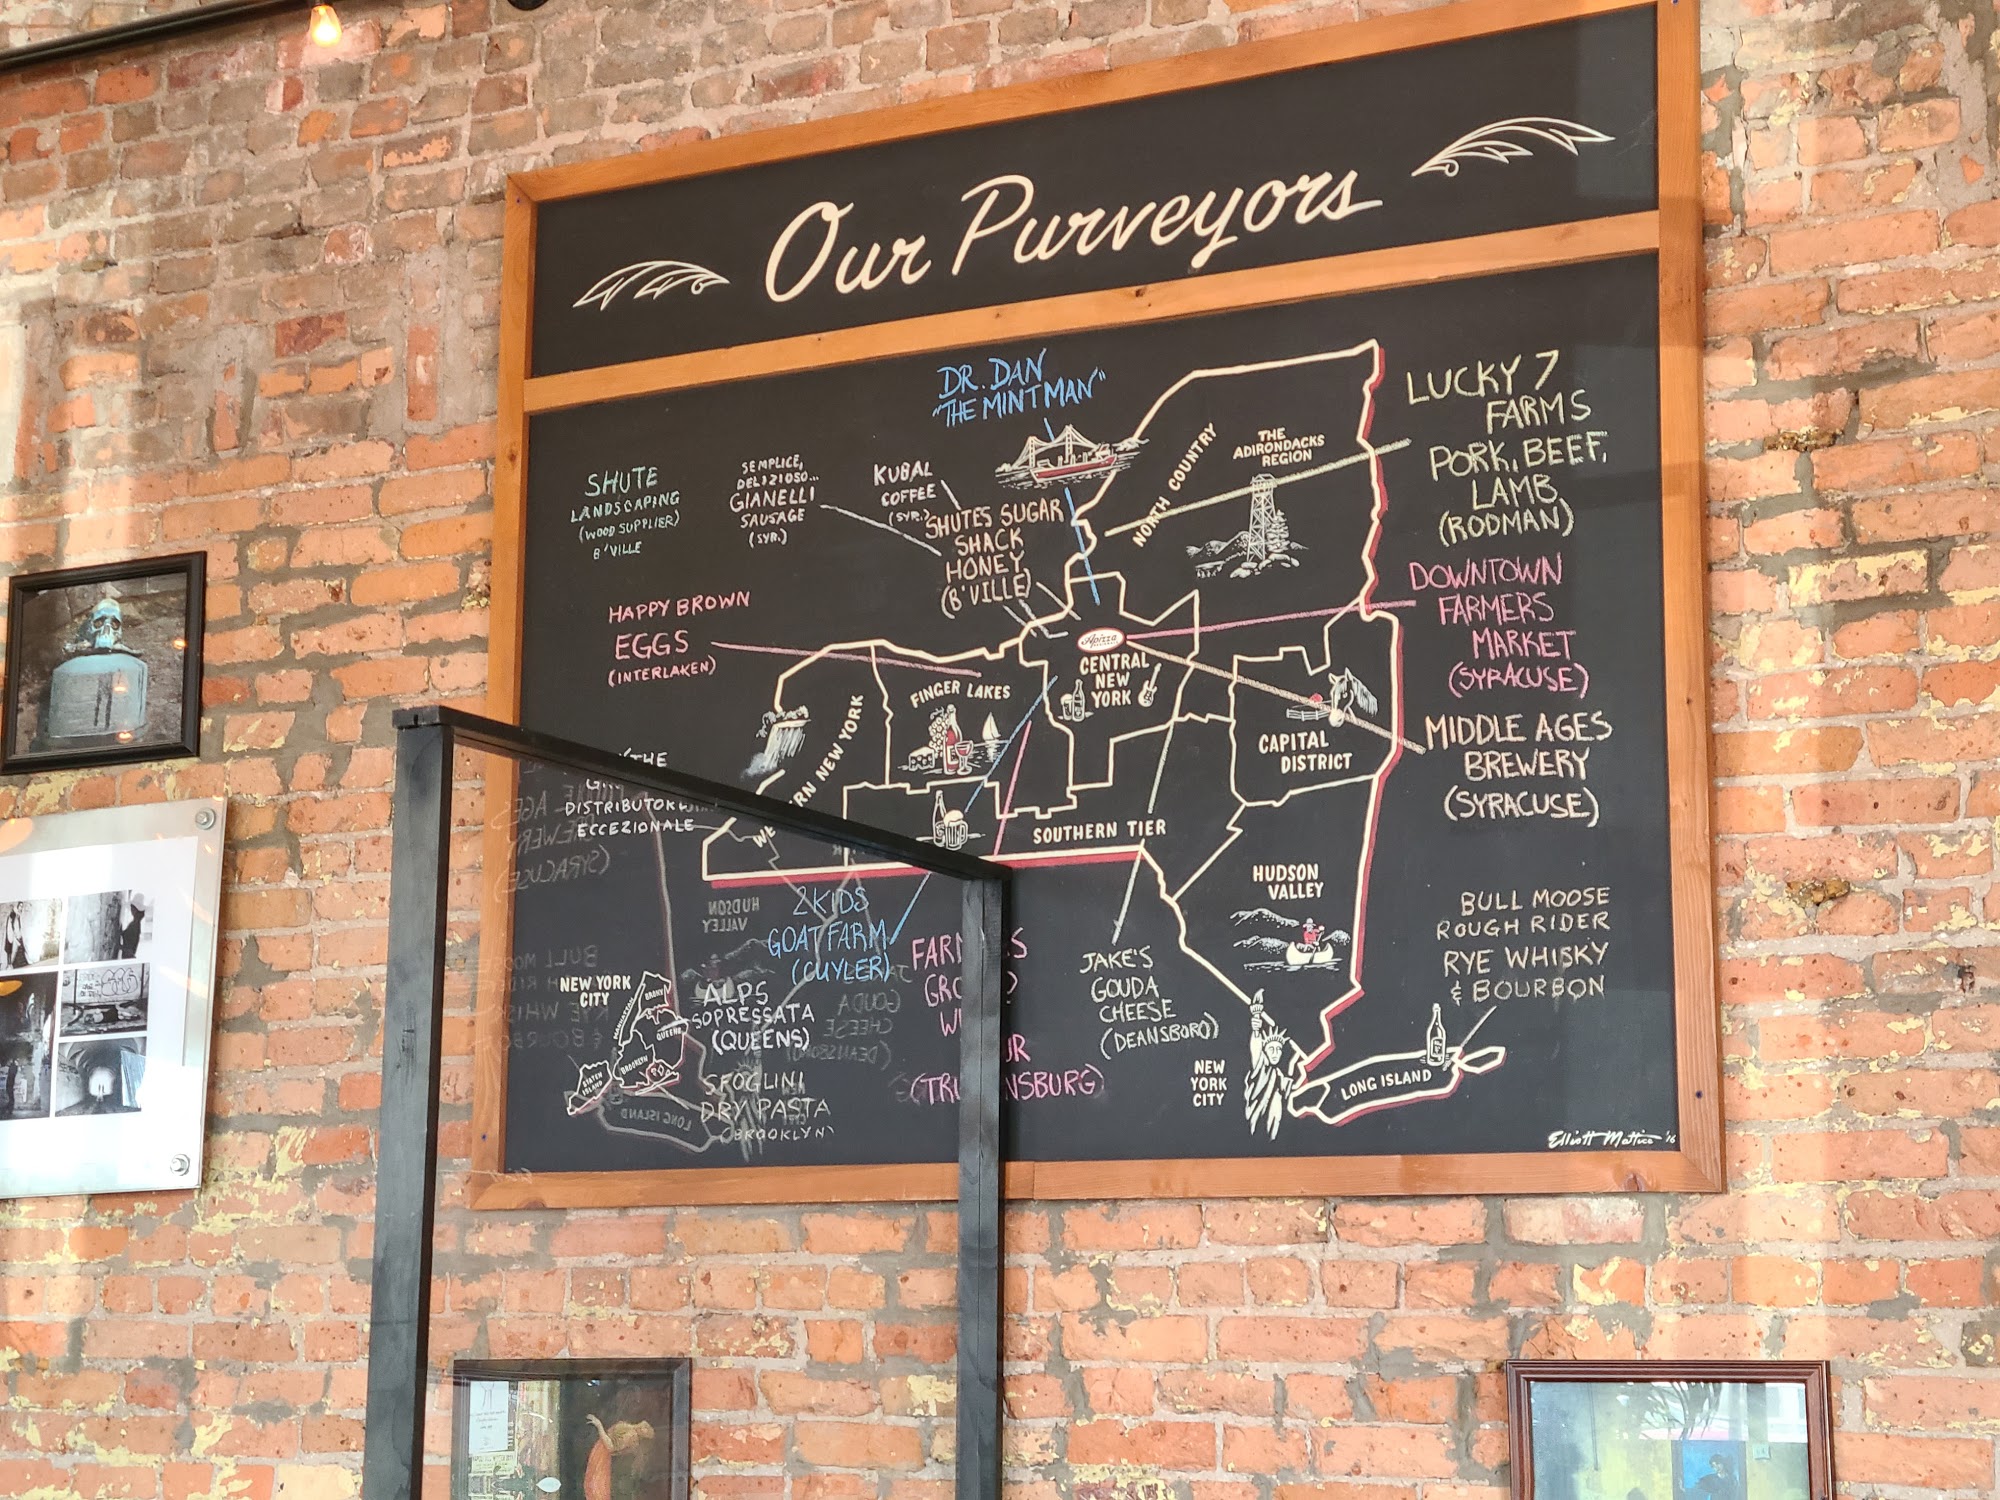 Our Purveyors
DR. DAN
"THE MINT MAN"
LUCKY 7
FARMS
PORK, BEEF,
LAMB
(RODMAN)
SHUTE
LANDSCAPING
(WOOD SUPPLIER)
B'VILLE
SEMPLICE,
DELIZIOSO...
GIANELLI
SAUSAGE
(SYR.)
KUBAL
COFFEE
(SYR.)
SHUTES SUGAR
SHACK
HONEY
(B'VILLE)
NORTH COUNTRY
THE
ADIRONDACKS
REGION
HAPPY BROWN
EGGS
(INTERLAKEN)
DOWNTOWN
FARMERS
MARKET
(SYRACUSE)
Apizza
CENTRAL
NEW
YORK
FINGER LAKES
NEW YORK
CAPITAL
DISTRICT
MIDDLE AGES
BREWERY
(SYRACUSE)
THE
DISTRIBUTOR
ECCEZIONALE
SOUTHERN TIER
HUDSON
VALLEY
2 KIDS
GOAT FARM
(CUYLER)
JAKE'S
GOUDA
CHEESE
(DEANSBORO)
BULL MOOSE
ROUGH RIDER
RYE WHISKY
& BOURBON
NEW YORK
CITY
BRONX
MANHATTAN
QUEENS
BROOKLYN
STATEN
ISLAND
ALPS
SOPRESSATA
(QUEENS)
SFOGLINI
DRY PASTA
(BROOKLYN)
NEW
YORK
CITY
LONG ISLAND
Elliott Mattice '16